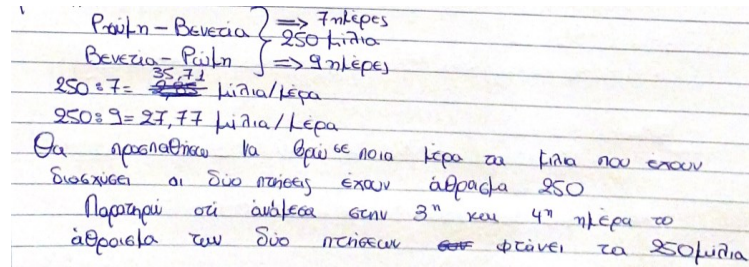 Ρώμη - Βενετία } => 7 ημέρες
250 μίλια
Βενετία - Ρώμη } => 9 ημέρες
250:7= 35,71 μίλια/μέρα
250:9=27,77 μίλια/μέρα
Θα προσπαθήσω να βρω σε ποια μέρα τα μίλια που έχουν
διασχύσει οι δύο πτήσεις έχουν άθροισμα 250
Παρατηρώ ότι ανάμεσα στην 3η και 4η ημέρα το
άθροισμα των δύο πτήσεων φτάνει τα 250 μίλια